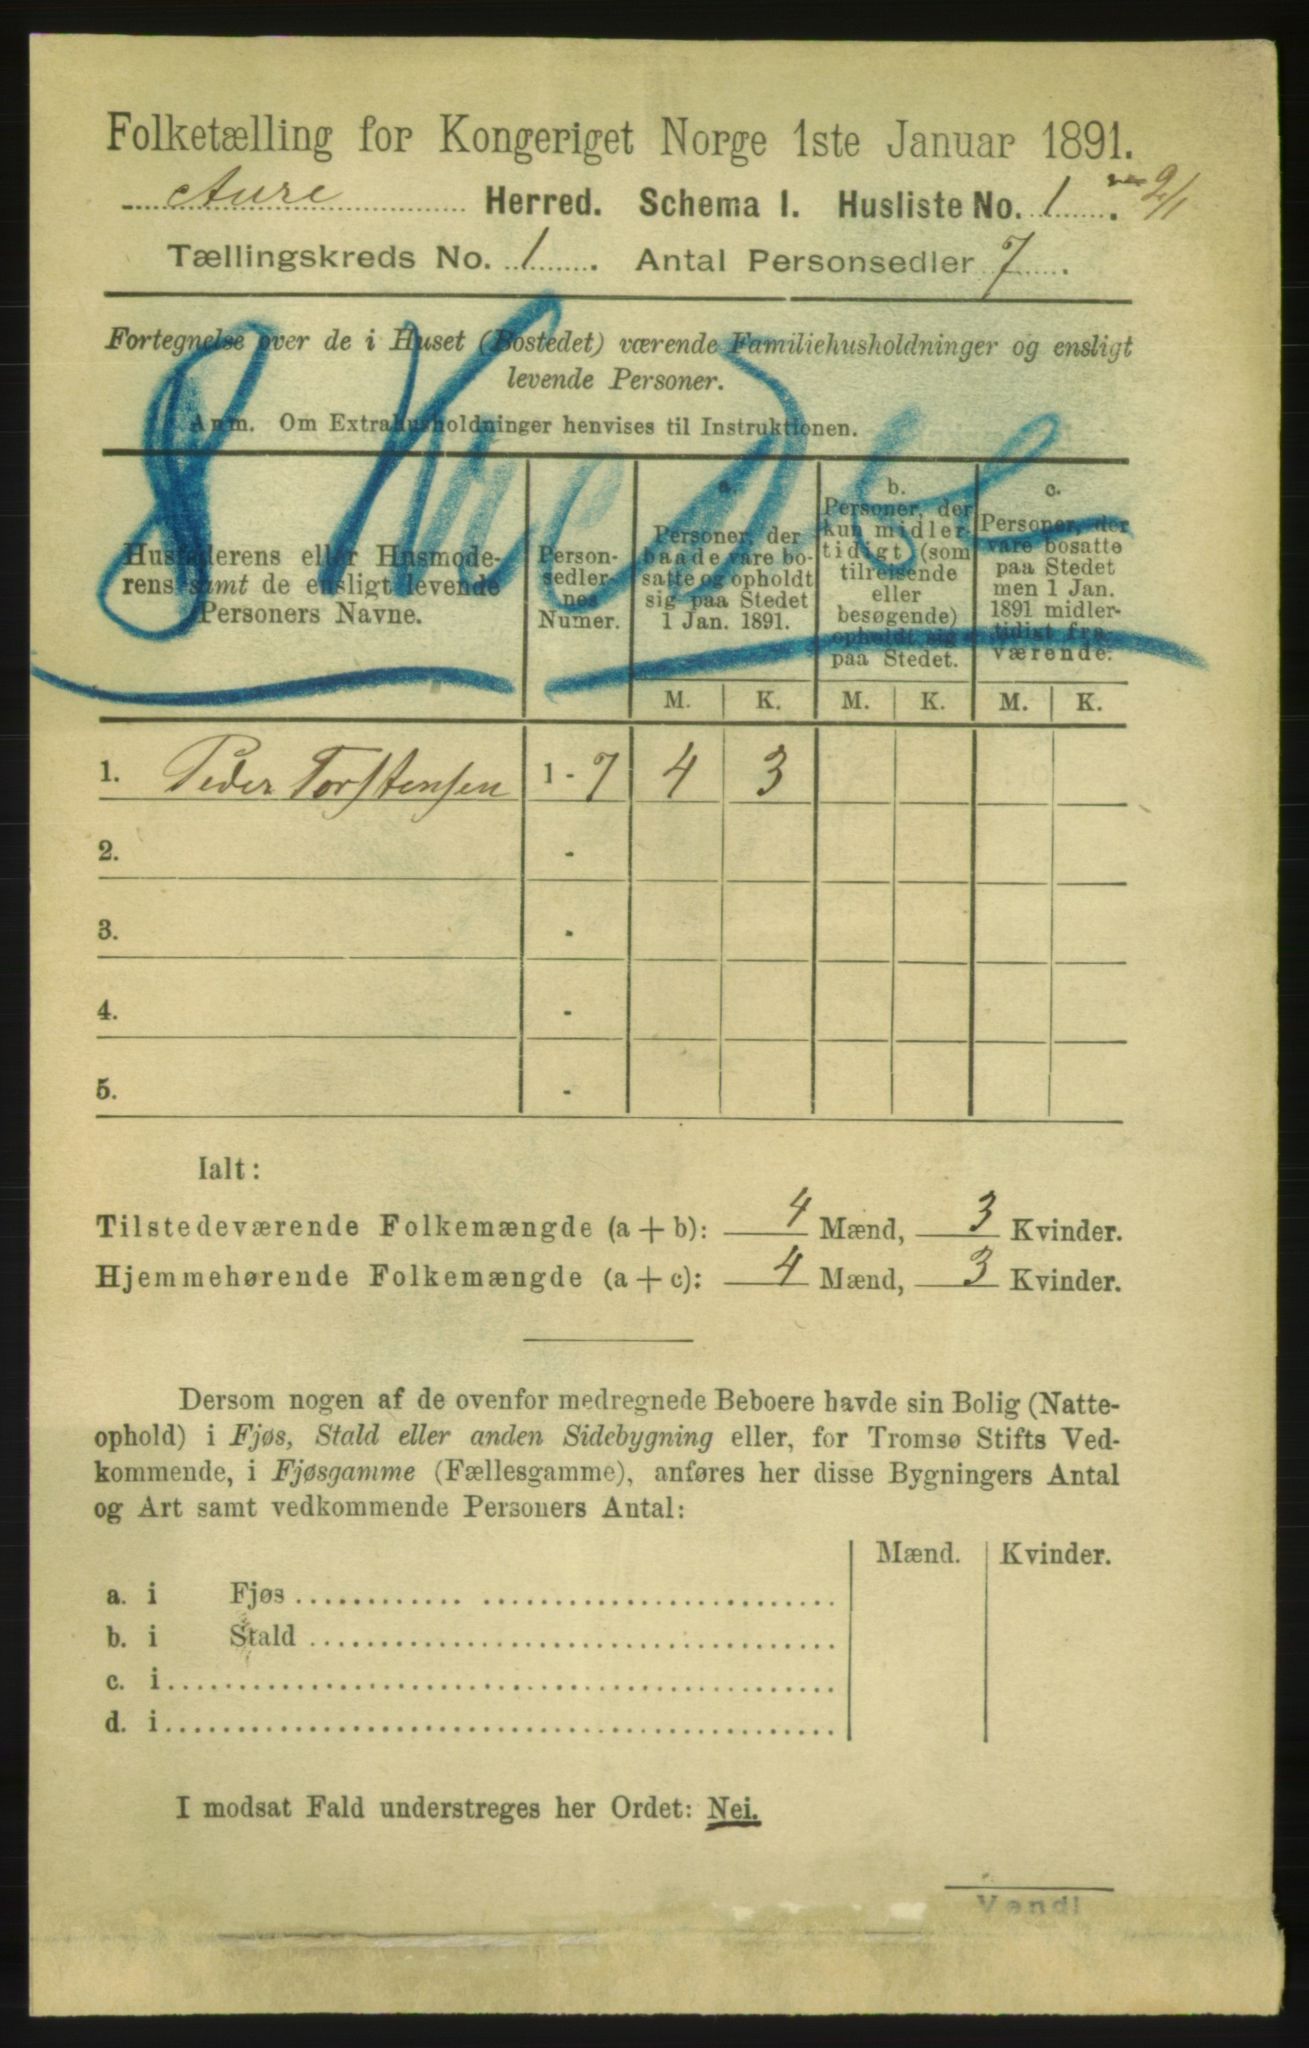 Folketælling for Kongeriget Norge 1ste Januar 1891.
Aure Herred. Schema I. Husliste No. 1. 2/1
Tællingskreds No. 1. Antal Personsedler 7.
Fortegnelse over de i Huset (Bostedet) værende Familiehusholdninger og ensligt
levende Personer.
Anm. Om Extrahusholdninger henvises til Instruktionen.
Husfaderens eller Husmode-
rens samt de ensligt levende
Personers Navne.
Person-
sedler-
nes
Numer.
a.
Personer, der
baade vare bo-
satte og opholdt
sig paa Stedet
1 Jan. 1891.
b.
Personer, der
kun midler-
tidigt (som
tilreisende
eller
besøgende)
opholdt sig
paa Stedet.
c.
Personer, der
vare bosatte
paa Stedet
men 1 Jan.
1891 midler-
tidigt fra-
værende.
M. K. M. K. M. K.
1. Peder Torstensen 1 - 7 4 3
2. -
3. -
4. -
5. -
Ialt:
Tilstedeværende Folkemængde (a + b): 4 Mænd, 3 Kvinder.
Hjemmehørende Folkemængde (a + c): 4 Mænd, 3 Kvinder.
Dersom nogen af de ovenfor medregnede Beboere havde sin Bolig (Natte-
ophold) i Fjøs, Stald eller anden Sidebygning eller, for Tromsø Stifts Ved-
kommende, i Fjøsgamme (Fællesgamme), anføres her disse Bygningers Antal
og Art samt vedkommende Personers Antal:
Mænd. Kvinder.
a. i Fjøs
b. i Stald
c. i
d. i
I modsat Fald understreges her Ordet: Nei.
Vend!